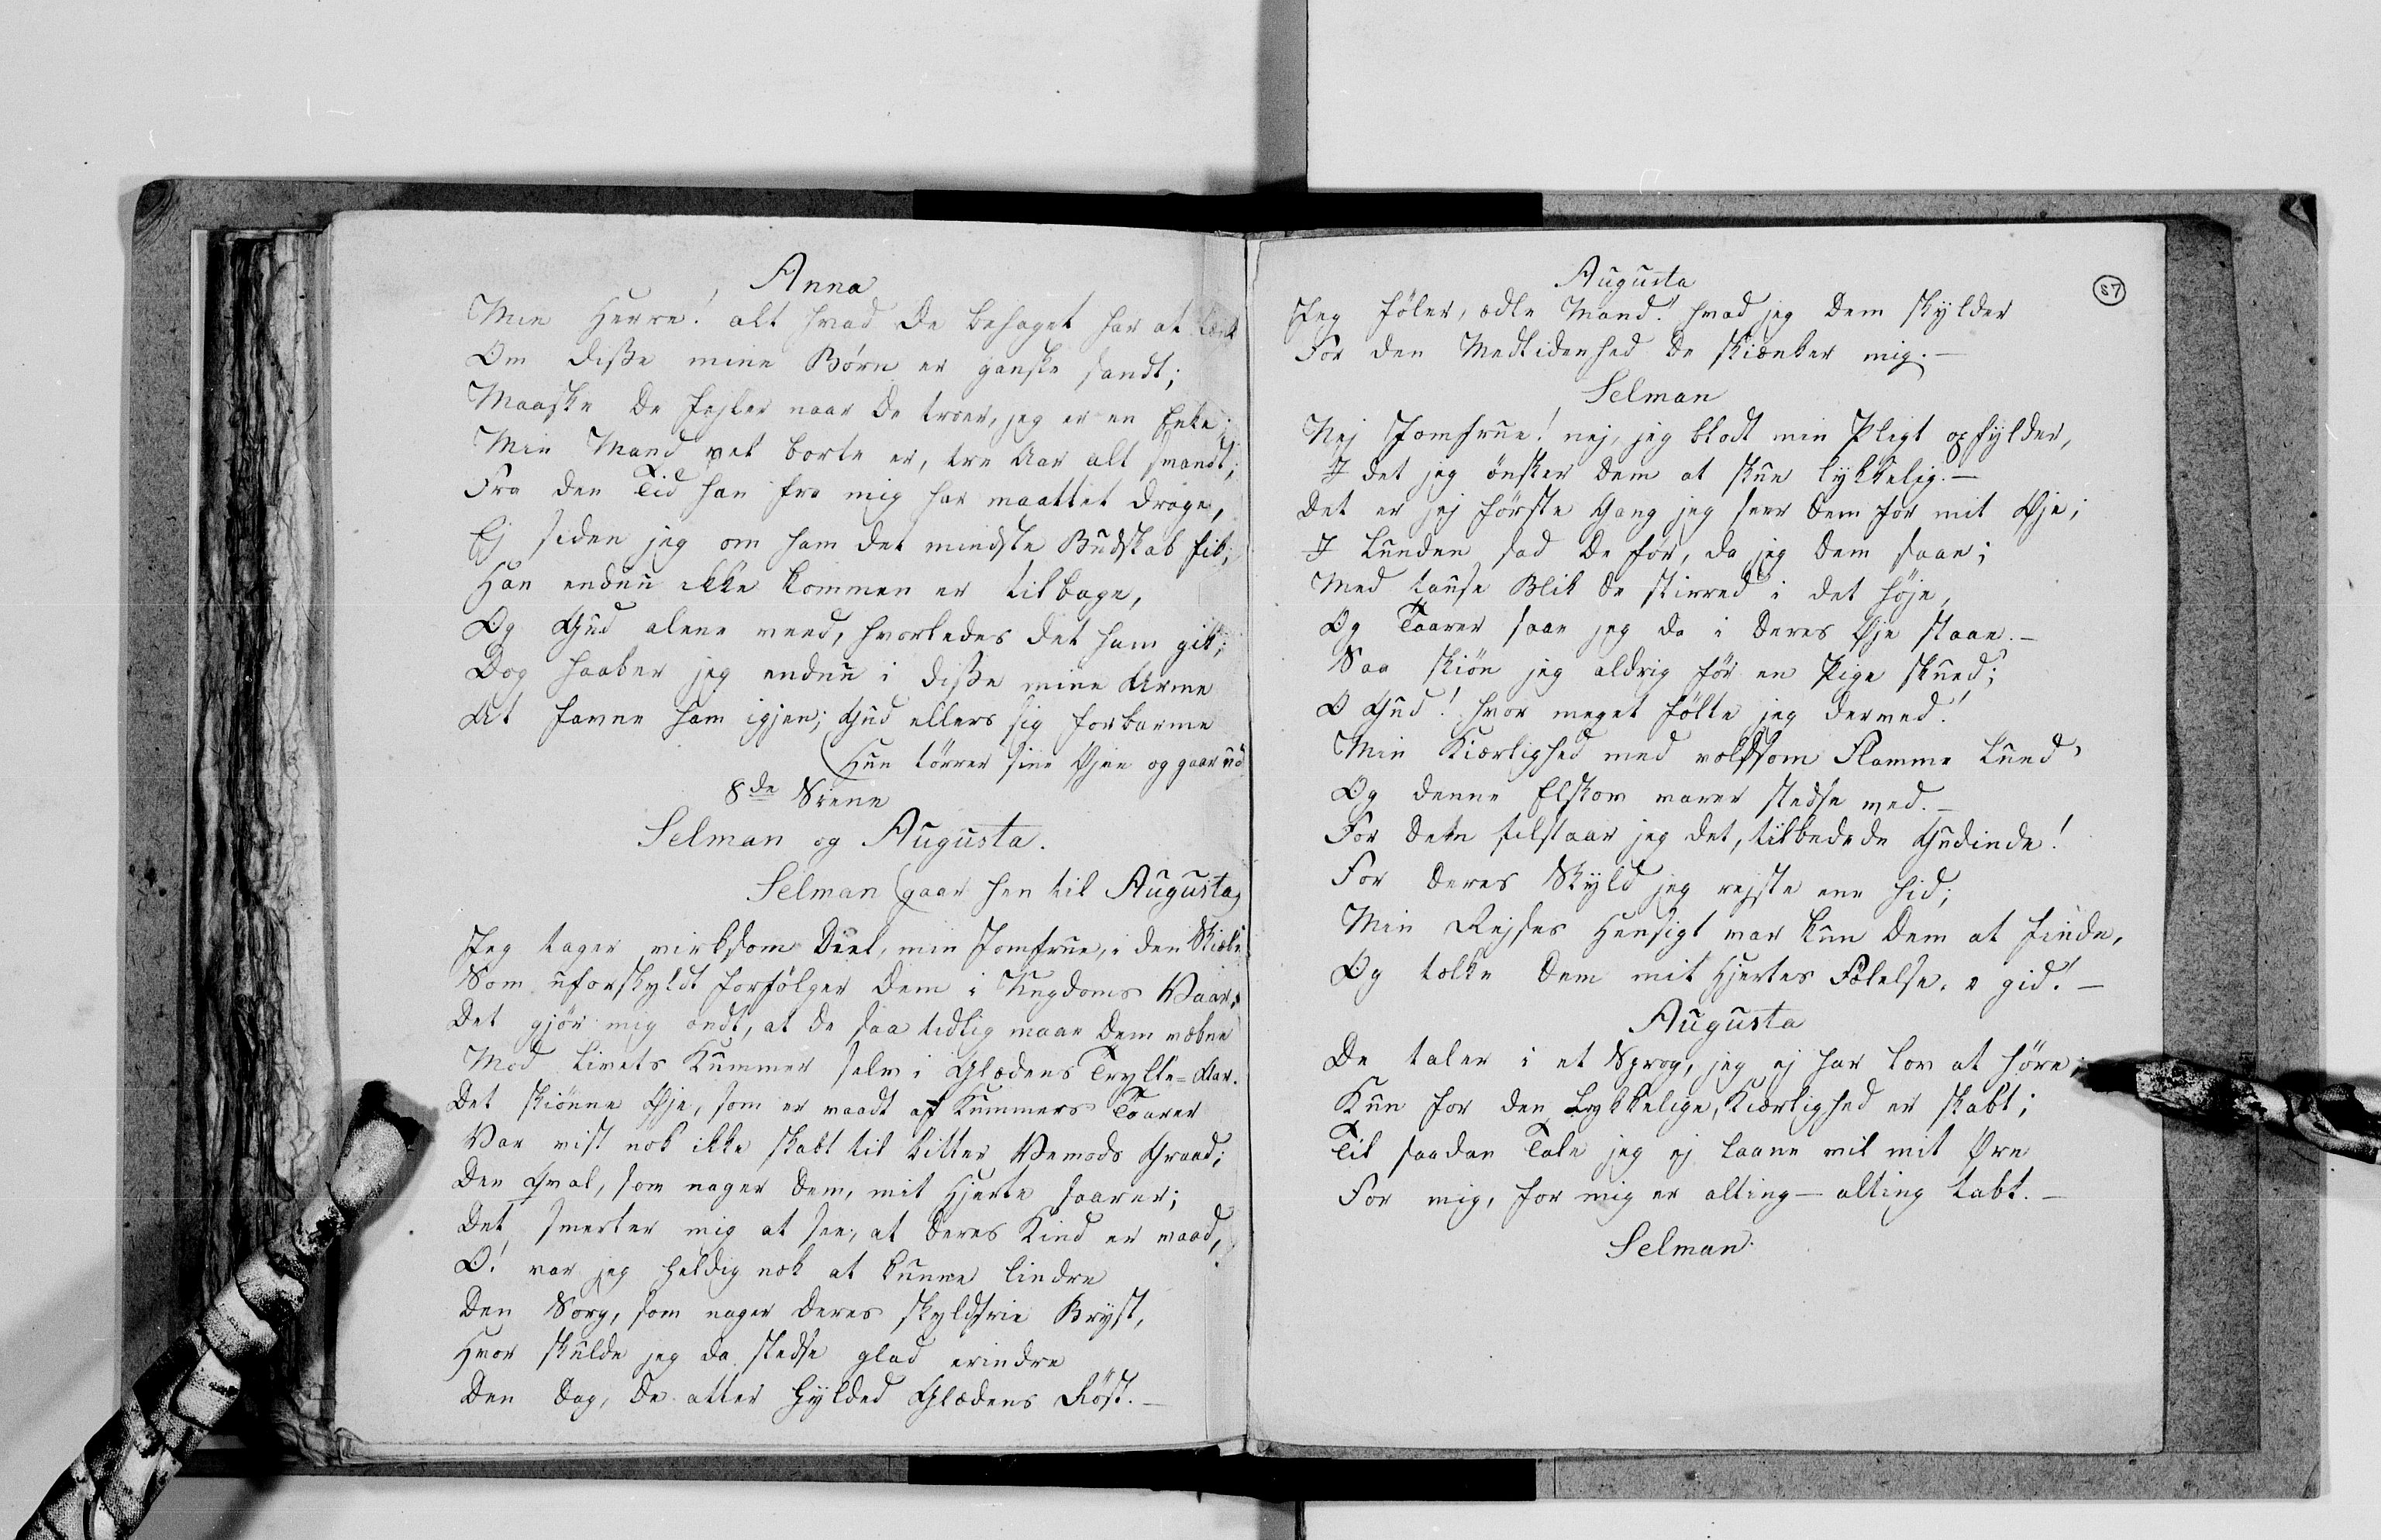 Anna
Min Herre! alt hvad De behaget har at tænke
Om disse mine Børn er ganske sandt;
Maaske De fejler naar De troer, jeg er en Enke;
Min Mand vek borte er, tre Aar alt svandt;
Fra den Tid han fra mig har maattet drage,
Ej siden jeg om ham det mindste Budskab fik;
Han endnu ikke kommen er tilbage,
Og Gud alene veed, hvorledes det ham gik;
Dog haaber jeg endnu i disse mine Arme
At favne ham igjen; Gud ellers sig forbarme
(Hun törrer sine Øjne og gaar ud
8de Scene
Selman og Augusta.
Selman (gaar hen til Augusta)
Jeg tager virksom Deel, min Jomfrue, i den Skiæbne
Som uforskyldt forfölger Dem i Ungdoms Vaar;
Det gjör mig ondt, at De saa tidlig maae Dem væbne
Mod Livets Kummer selv i Glædens Trylle-Aar.
Det skiönne Øje, som er vaadt af Kummers Taarer
Var vist nok ikke skabt til bitter Vemods Graad;
Den Qval, som nager Dem, mit Hjerte saarer;
Det smerter mig at see, at Deres Kind er vaad,
O! var jeg heldig nok at kunne lindre
Den Sorg, som nager Deres skyldfrie Bryst,
Hvor skulde jeg da stedse glad erindre
Den Dag, De atter hylded Glædens Röst.—
87
Augusta
Jeg föler, ædle Mand! hvad jeg Dem skylder
For den Medlidenhed De skiænker mig.—
Selman
Nej Jomfrue! nej, jeg blodt min Pligt opfylder,
I det jeg önsker Dem at skue lykkelig.—
Det er ej förste Gang jeg seer Dem for mit Øje;
I Lunden sad De för, da jeg Dem saae;
Med tause Blik De stirred i det höje,
Og Taarer saae jeg da i Deres Øje staae.—
Saa skiön jeg aldrig för en Pige skued;
O Gud! hvor meget fölte jeg derved!
Min Kiærlighed med voldsom Flamme lued'
Og denne Elskov varer stedse ved.—
For Dem tilstaar jeg det, tilbedede Gudinde!
For Deres Skyld jeg rejste ene hid;
Min Rejses Hensigt var kun Dem at finde,
Og tolke Dem mit Hjertes Følelse, o gid!—
Augusta
De taler i et Sprog, jeg ej har Lov at höre;
Kun for den Lykkelige, Kiærlighed er skabt;
Til saadan Tale jeg ej laane vil mit Øre
For mig, for mig er alting—alting tabt.—
Selman.